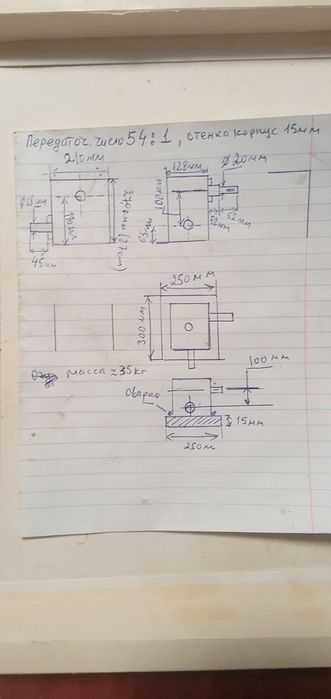 Передаточ. число 54:1, стенка корпус 15мм
210мм
128мм
Ø20мм
Ø18мм
100мм
52мм
45мм
250мм
300мм
масса ≈35кг
100мм
сварка
15мм
250м